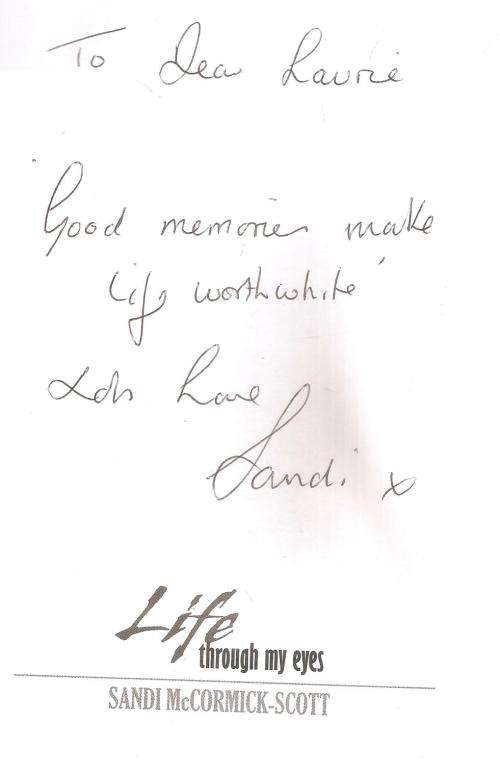 To Dear Laurie
'Good memories make
Life worthwhile'
Lots Love
Sandi x
Life
through my eyes
SANDI McCORMICK-SCOTT